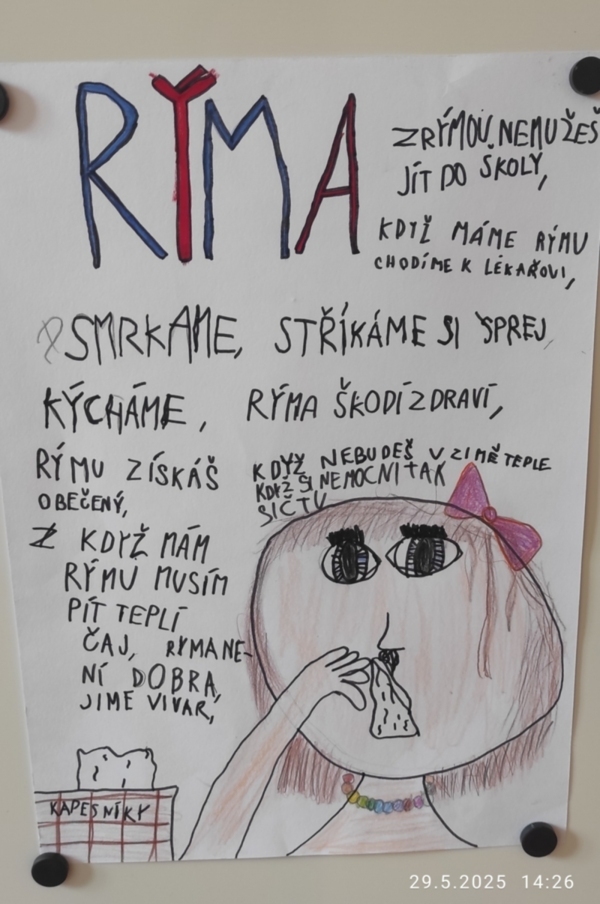 RÝMA
Z RÝMOU NEMUŽEŠ
JÍT DO ŠKOLY,
KDYŽ MÁME RÝMU
CHODÍME K LÉKAŘOVI,
SMRKAME, STŘÍKÁME SI SPREJ
KÝCHÁME, RÝMA ŠKODÍ ZDRAVÍ,
RÝMU ZÍSKÁŠ
OBEČENÝ,
KDYŽ NEBUDEŠ V ZIMĚ TEPLE
KDYŽ SI NEMOCNI TAK
SIČTU
Z KDYŽ MÁM
RÝMU MUSÍM
PÍT TEPLÍ
ČAJ, RYMA NE-
NÍ DOBRA,
JIME VIVAR,
KAPESNÍKY
29.5.2025 14:26